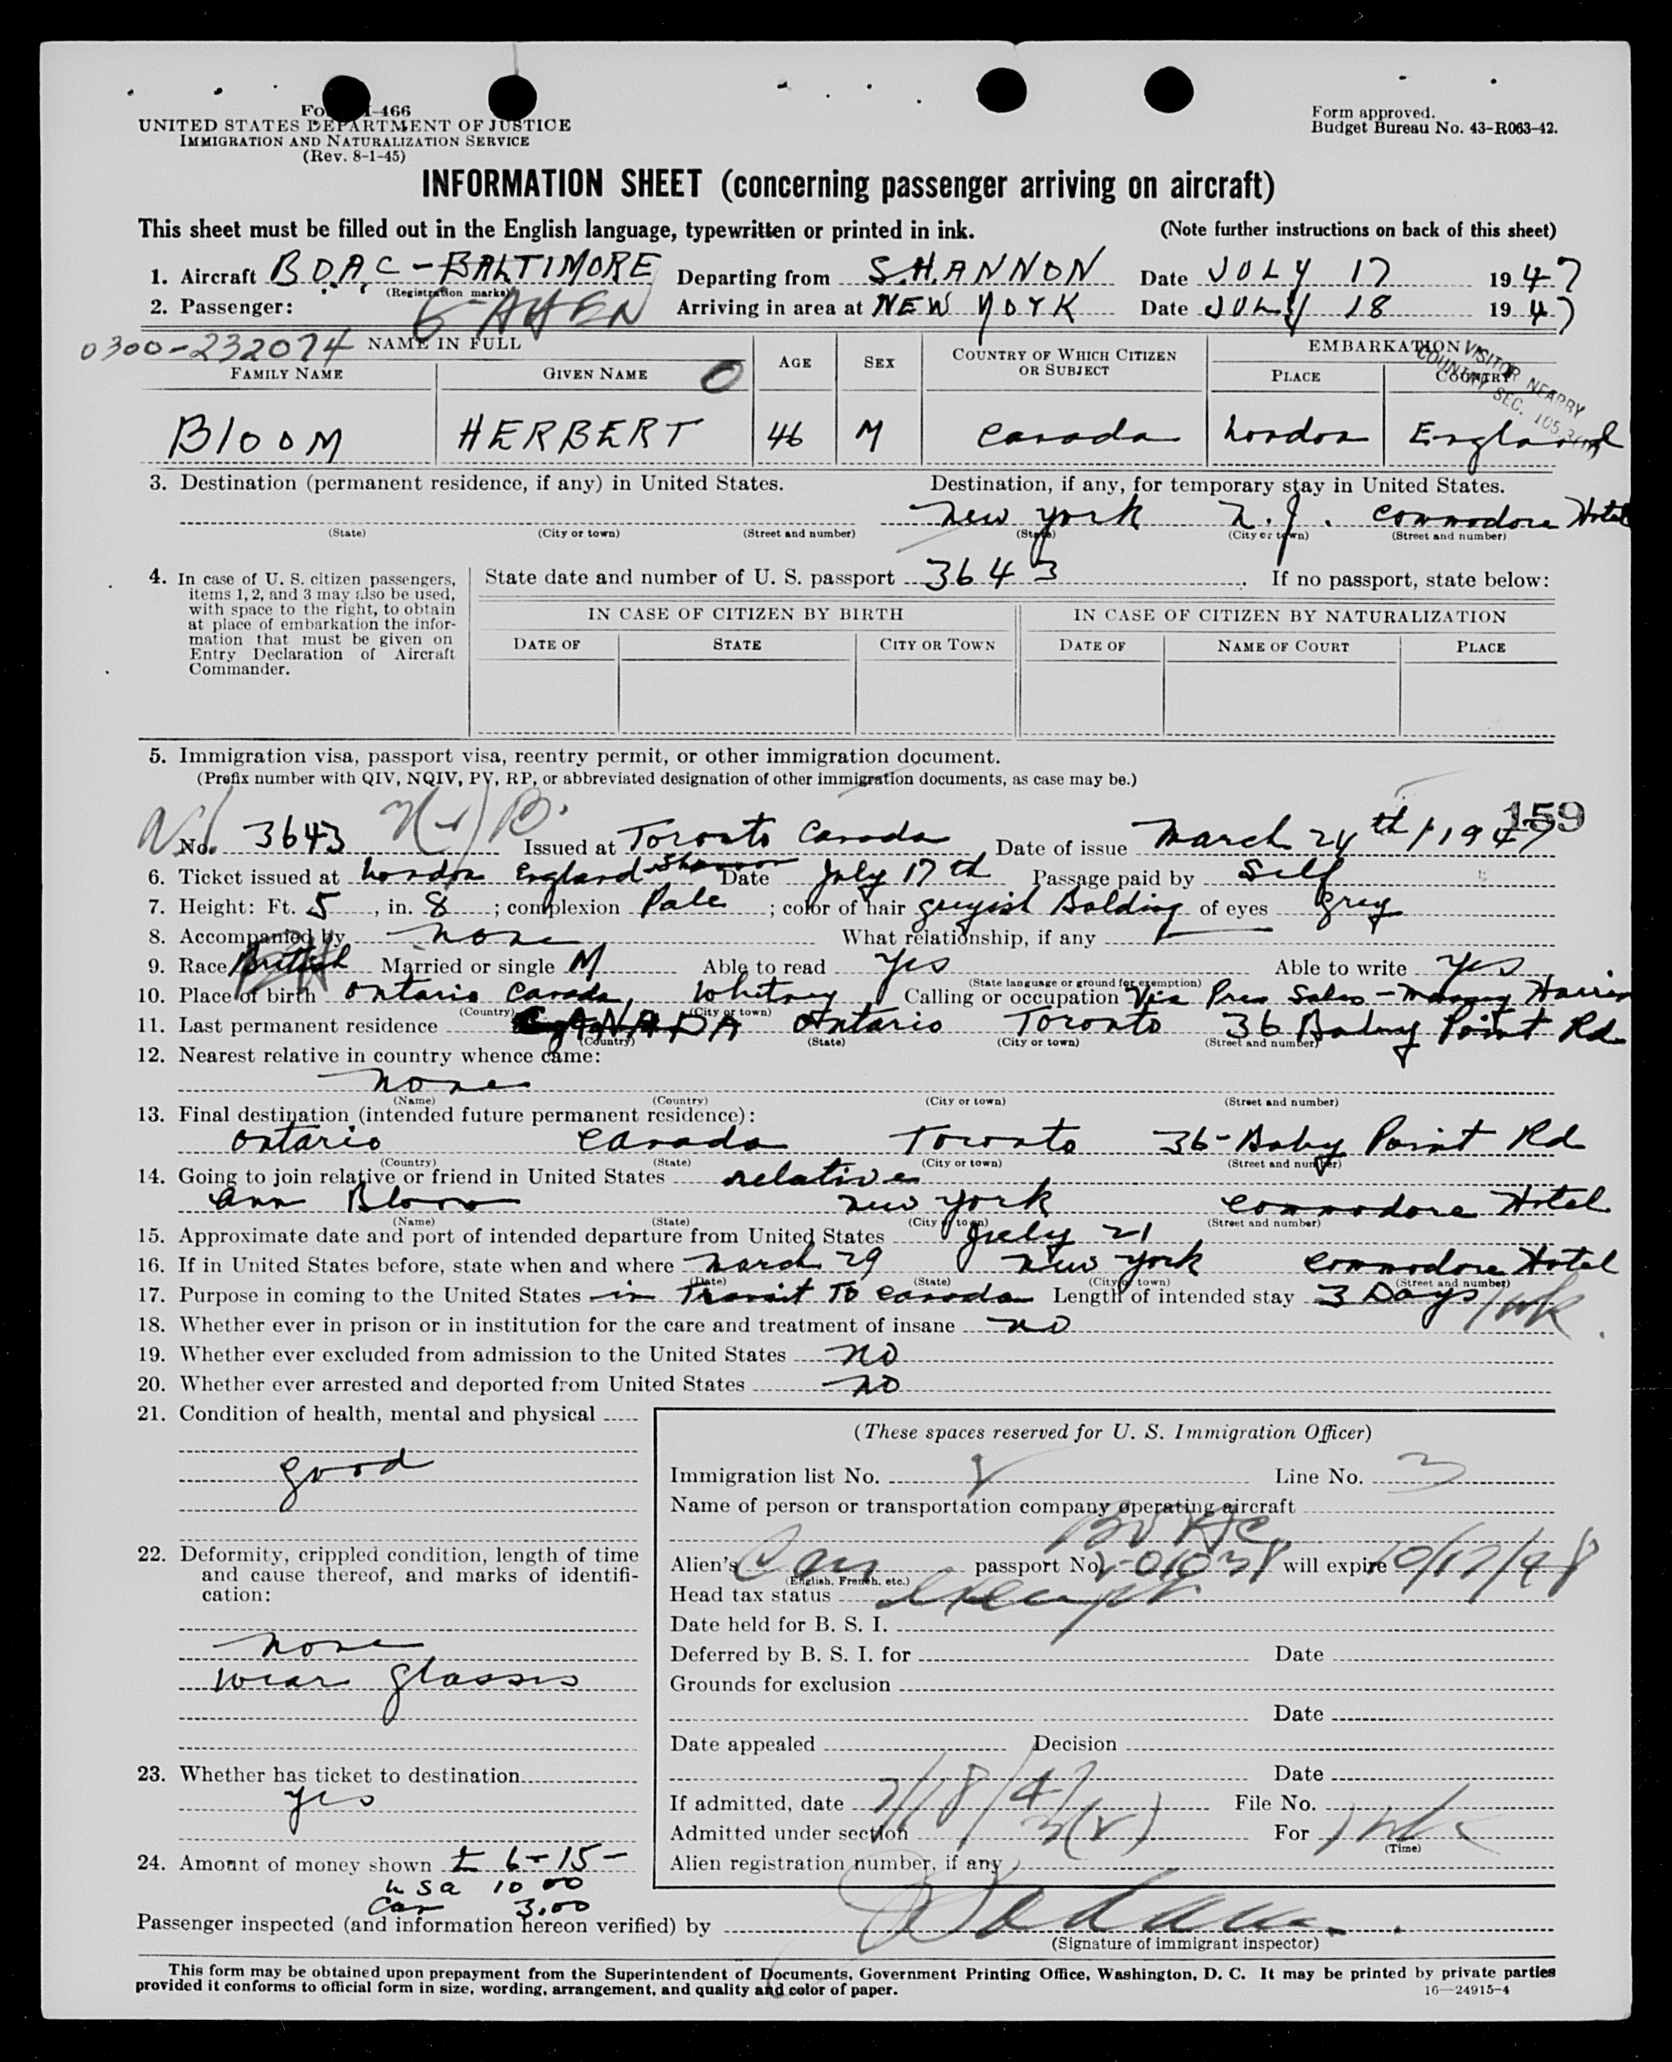 Form I-466
UNITED STATES DEPARTMENT OF JUSTICE
IMMIGRATION AND NATURALIZATION SERVICE
(Rev. 8-1-45)
Form approved.
Budget Bureau No. 43-R063-42.
INFORMATION SHEET (concerning passenger arriving on aircraft)
This sheet must be filled out in the English language, typewritten or printed in ink. (Note further instructions on back of this sheet)
1. Aircraft B.O.A.C - BALTIMORE Departing from SHANNON Date JULY 17 1947
(Registration marks)
2. Passenger: Arriving in area at NEW YORK Date JULY 18 1947
0300-232074 NAME IN FULL AGE SEX COUNTRY OF WHICH CITIZEN OR SUBJECT EMBARKATION
VISITOR NEARBY COUNTRY SEC.
FAMILY NAME GIVEN NAME PLACE COUNTRY
BlooM HERBERT 46 M Canada London England
3. Destination (permanent residence, if any) in United States. Destination, if any, for temporary stay in United States.
New York N.Y. Commodore Hotel
(State) (City or town) (Street and number) (State) (City or town) (Street and number)
4. In case of U. S. citizen passengers, items 1, 2, and 3 may also be used, with space to the right, to obtain at place of embarkation the information that must be given on Entry Declaration of Aircraft Commander.
State date and number of U. S. passport 3643. If no passport, state below:
IN CASE OF CITIZEN BY BIRTH IN CASE OF CITIZEN BY NATURALIZATION
DATE OF STATE CITY OR TOWN DATE OF NAME OF COURT PLACE
5. Immigration visa, passport visa, reentry permit, or other immigration document.
(Prefix number with QIV, NQIV, PV, RP, or abbreviated designation of other immigration documents, as case may be.)
159
No. 3643 Issued at Toronto Canada Date of issue March 24th 1947
6. Ticket issued at London England Shannon Date July 17th Passage paid by Self
7. Height: Ft. 5, in. 8; complexion Pale; color of hair greyish Balding of eyes grey
8. Accompanied by none What relationship, if any
9. Race British Married or single M Able to read yes Able to write yes
(State language or ground for exemption)
10. Place of birth Ontario Canada, Whitney Calling or occupation Vice Pres Sales - Massey Harris
(Country) (City or town)
11. Last permanent residence CANADA Ontario Toronto 36 Baby Point Rd
(Country) (State) (City or town) (Street and number)
12. Nearest relative in country whence came:
none
(Name) (Country) (City or town) (Street and number)
13. Final destination (intended future permanent residence):
Ontario Canada Toronto 36-Baby Point Rd
(Country) (State) (City or town) (Street and number)
14. Going to join relative or friend in United States relative
Ann Bloom New York Commodore Hotel
(Name) (State) (City or town) (Street and number)
15. Approximate date and port of intended departure from United States July 21
16. If in United States before, state when and where March 29 New York Commodore Hotel
(Date) (State) (City or town) (Street and number)
17. Purpose in coming to the United States in Transit To Canada Length of intended stay 3 Days 1 wk
18. Whether ever in prison or in institution for the care and treatment of insane no
19. Whether ever excluded from admission to the United States no
20. Whether ever arrested and deported from United States no
21. Condition of health, mental and physical
good
22. Deformity, crippled condition, length of time and cause thereof, and marks of identification:
none
wear glasses
23. Whether has ticket to destination
yes
24. Amount of money shown £ 6-15-
USA 10 00
Can 3.00
(These spaces reserved for U. S. Immigration Officer)
Immigration list No. Line No. 3
Name of person or transportation company operating aircraft
BOAC
Alien's Can passport No. 2-01038 will expire 10/17/48
(English, French, etc.)
Head tax status exempt
Date held for B. S. I.
Deferred by B. S. I. for Date
Grounds for exclusion
Date
Date appealed Decision
Date
If admitted, date 7/18/47 File No.
Admitted under section 3(2) For 1 wk
(Time)
Alien registration number, if any
Passenger inspected (and information hereon verified) by
(Signature of immigrant inspector)
This form may be obtained upon prepayment from the Superintendent of Documents, Government Printing Office, Washington, D. C. It may be printed by private parties
provided it conforms to official form in size, wording, arrangement, and quality and color of paper. 16—24915-4